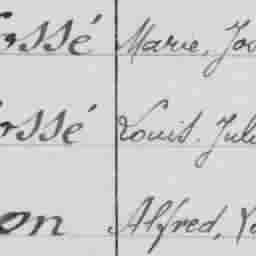 ssé Marie, Jos
ssé Louis, Jule
on Alfred,